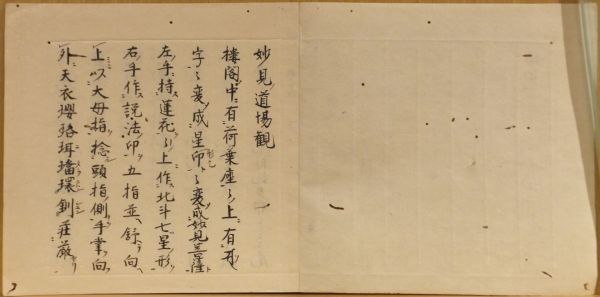 妙見道場観
樓閣中有荷葉座〻上有
字〻変成星印〻変成妙見菩薩
左手持蓮花〻上作北斗七星形
右手作説法印五指並舒向
上以大母指捻頭指側手掌向
外天衣瓔珞珥璫環釧荘厳